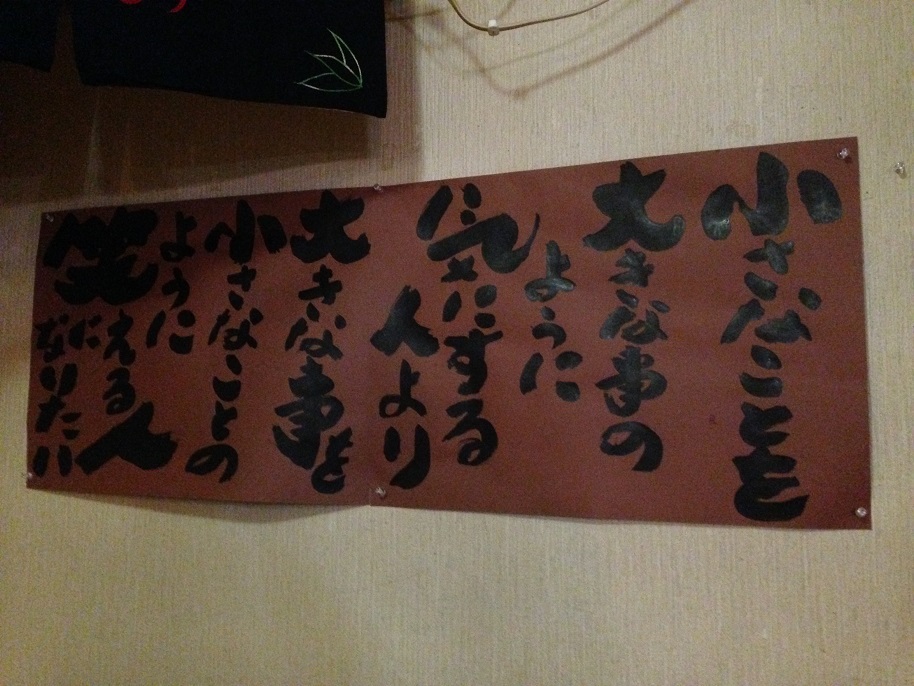 小さなことを
大きな事の
ように
気にする
人より
大きな事を
小さなことの
ように
笑える人
に
なりたい